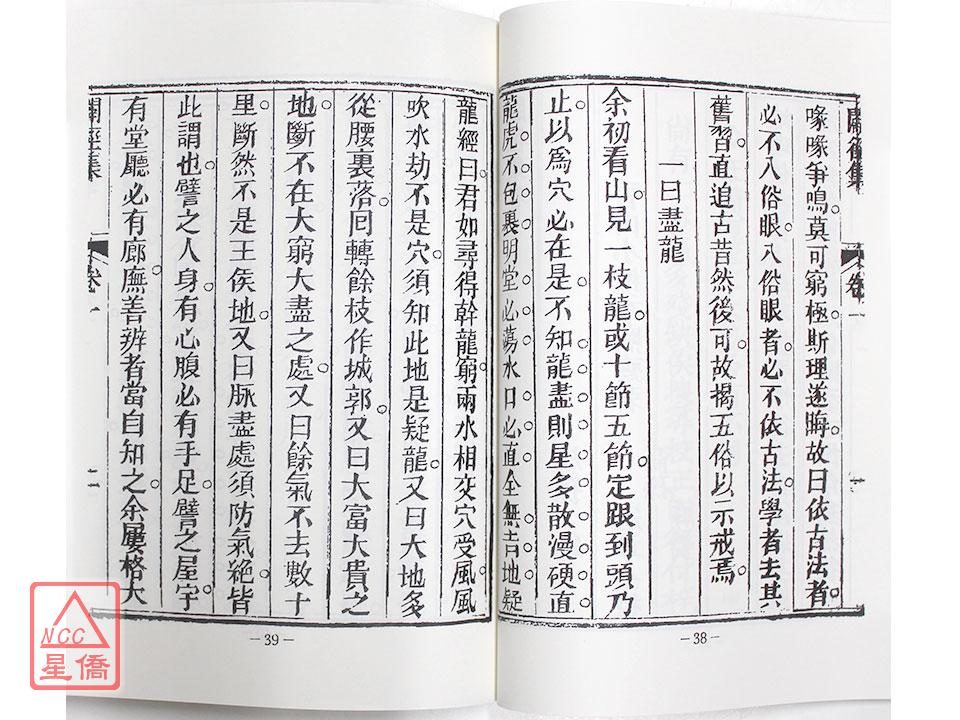 喙喙爭鳴莫可窮極斯理遂晦故曰依古法者
必不入俗眼入俗眼者必不依古法學者去其
舊習直追古昔然後可故揭五俗以示戒焉
一曰盡龍
余初看山見一枝龍或十節五節定跟到頭乃
止以爲穴必在是不知龍盡則星多散漫硬直
龍虎不包裹明堂必蕩水口必直全無吉地疑
卷一
—38—
龍經曰君如尋得幹龍窮兩水相交穴受風風
吹水劫不是穴須知此地是疑龍又曰大地多
從腰裏落囘轉餘枝作城郭又曰大富大貴之
地斷不在大窮大盡之處又曰餘氣不去數十
里斷然不是王侯地又曰脉盡處須防氣絕皆
此謂也譬之人身有心腹必有手足譬之屋宇
有堂廳必有廊廡善辨者當自知之余屢格大
卷一
—39—
NCC
星僑